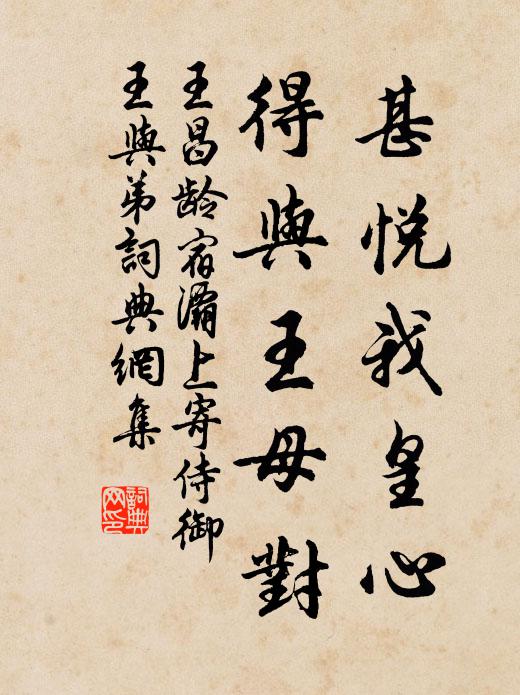 甚悅我皇心
得與王母對
王昌龄宿灞上寄侍御
王與弟詞典網集
詞典网印